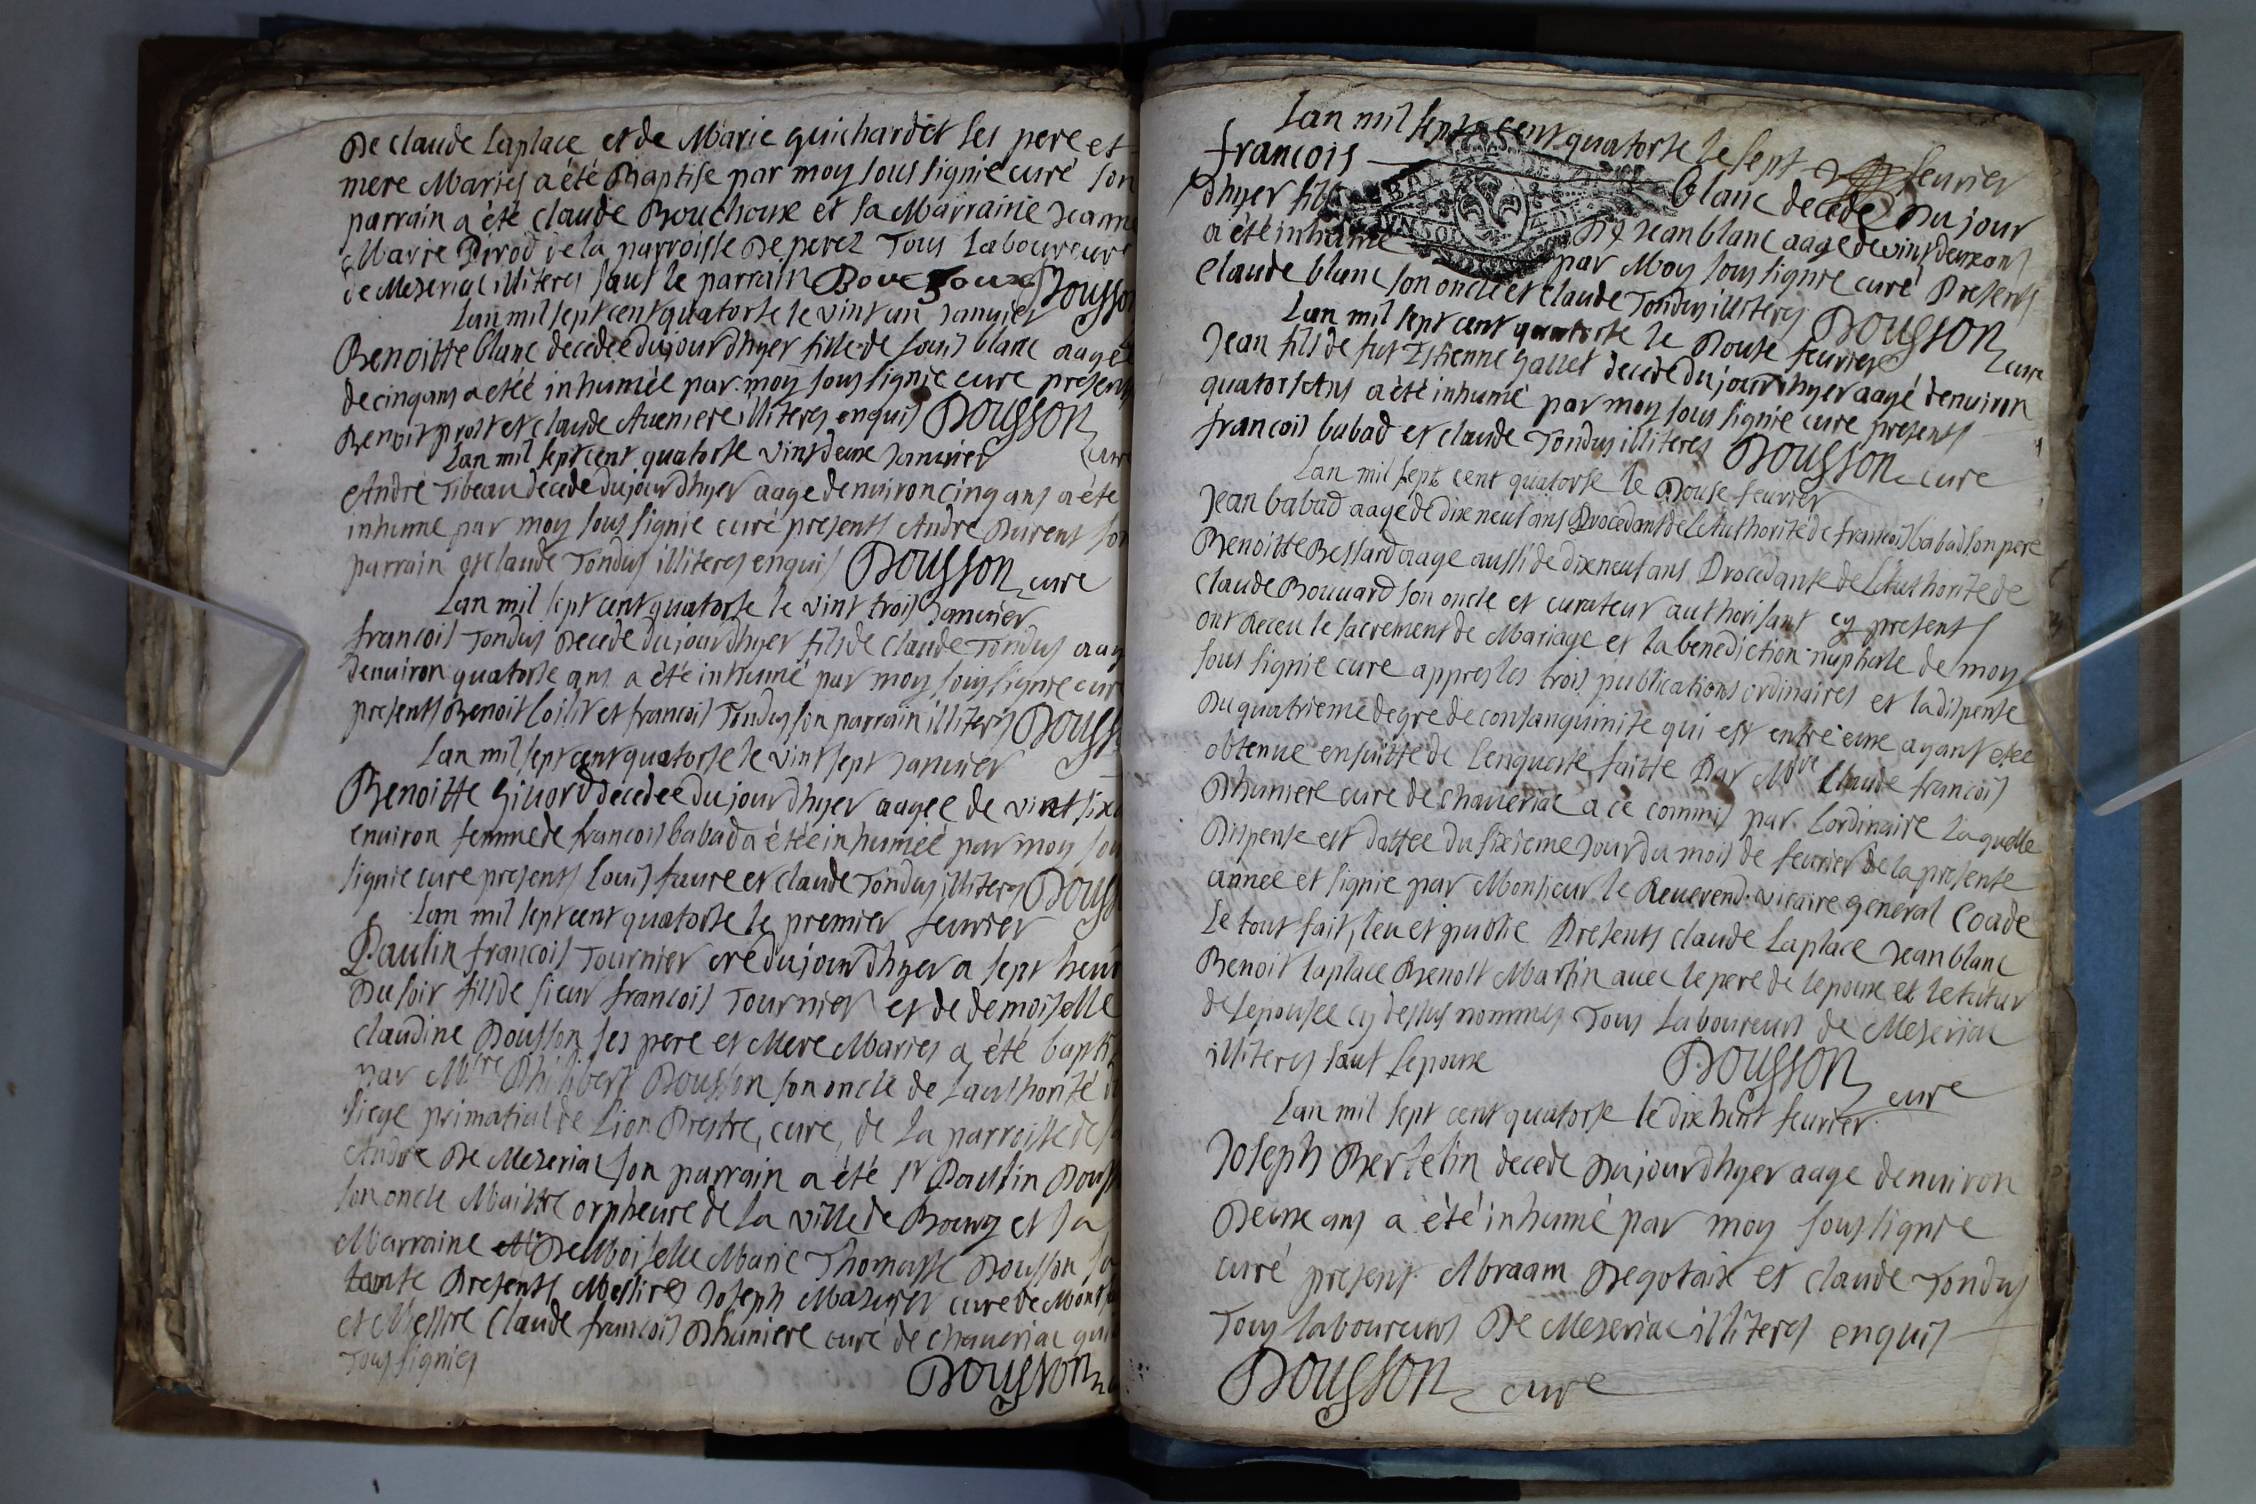 De claude Laplace et de Marie guichardet ses pere et
mere Mariés a été Baptise par moy sous signié curé son
parrain a été claude Bouchoux et sa Marraine Jeanne
Marie Pirod de la parroisse de perez Tous Laboureurs
de Mezeriac illiteres sauf le parrain Bouchoux Dousson
Lan mil sept cent quatorse le vint un Janvier
Benoitte blanc decedee dujourdhyer fille de Louis blanc aagée
de cinq ans a etéé inhumée par moy sous signie cure presents
Benoit prost et claude Aueniere illiteres enquis Dousson cure
Lan mil sept cent quatorse vint deux Janvier
Andre Tibeau decede dujourdhyer aage denuiron cinq ans a été
inhume par moy sous signie curé presents Andre Durent son
parrain et claude Tondus illiteres enquis Dousson cure
Lan mil sept cent quatorse le vint trois Janvier
francois Tondus Decede dujourdhyer fils de claude Tondus aag
denuiron quatorse ans a été inhumé par moy sous signie cure
presents Benoit Loilit et francois Tondus son parrain illiteres Douss
Lan mil sept cent quatorse le vint sept Janvier
Benoitte Giuord decedee dujourdhyer aagee de vint six
enuiron femme de francois babad a étée inhumée par moy sou
signie cure presents Louis faure et claude Tondus illiteres Douss
Lan mil sept cent quatorse le premier feurier
Paulin francois Tournier né dujourdhyer a sept heur
Du soir fils de sieur francois Tournier et de demoiselle
claudine Dousson ses pere et Mere Maries a été bapti
par Mtre Philibert Dousson son oncle de Lauthorité d
siege primatial de Lion Prestre, cure, de la parroisse de s
Andre De Mezeriac son parrain a été sr Paulin Douss
son oncle Maistre orpheure de la ville de Bourg et sa
Marraine DeMoiselle Marie Thomasse Dousson sa
tante Presents Messires Joseph Mazuyer cure de Mont
et Messire Claude francois Dhuniere curé de chaueriac qui
Tous signies
Dousson
Lan mil sept cent quatorse le sept feurier
francois blanc decede Dujour
dhyer fils De Jean blanc aage de vint deux ans
a été inhumé par Moy sous signie curé Presents
Claude blanc son oncle et claude Tondus illiteres Dousson cure
Lan mil sept cent quatorse le Douse feurier
Jean fils de fut Estienne Gallet decede dujourdhyer aagé denuiron
quatorse Ans a été inhumé par moy sous signie cure presents
francois babad et claude Tondus illiteres Dousson cure
Lan mil sept cent quatorse le Douse feurier
Jean babad aage de dix neuf ans Procedant de LAuthorité de francois babad son pere
Benoitte Bessard aage aussi de dix neuf ans Procedante de LAuthorité de
claude Bouuard son oncle et curateur authorisant cy presents
ont Receu le sacrement de Mariage et la benediction nuptiale de moy
sous signie cure appres les trois publications ordinaires et la dispense
Du quatrieme degre de consanguinité qui est entre eux ayant etée
obtenue ensuitte de Lenqueste faitte Par Mtre Claude francois
Dhuniere cure de chaueriac a ce commis par Lordinaire Laquelle
Dispense est dattee du sixieme Jour du mois de feurier de la presente
année et signie par Monsieur le Reuerend vicaire general Coade
Le tout fait, leu et publie Presents claude Laplace Jean blanc
Benoit Laplace Benoit Martin auec le pere de lepoux et le tutur
de Lepousee cy dessus nommes Tous Laboureurs de Mezeriac
illiteres sauf Lepoux Dousson cure
Lan mil sept cent quatorse le dix huit feurier
Joseph Bertelin decede Dujourdhyer aage denuiron
Deux ans a été inhumé par moy sous signie
curé present Abraam Degotaix et claude Tondus
Tous laboureurs De Mezeriac illiteres enquis
Dousson cure